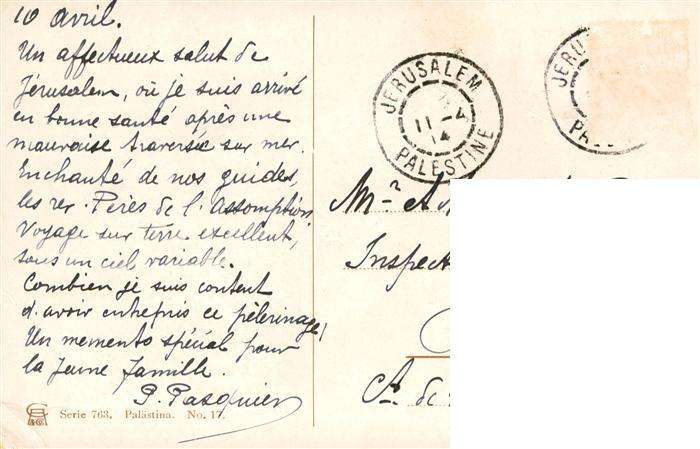 10 avril.
Un affectueux salut de
Jérusalem, où je suis arrivé
en bonne santé après une
mauvaise traversée sur mer.
Enchanté de nos guides,
les rev. Pères de l'Assomption
Voyage sur terre excellent,
sous un ciel variable.
Combien je suis content
d'avoir entrepris ce pèlerinage!
Un memento spécial pour
la Jeune famille.
P. Pasquier
Serie 763. Palästina. No. 17.
JERUSALEM
11-4
14
PALESTINE
JERU
PAL
Mr A
Inspect
Ct. de